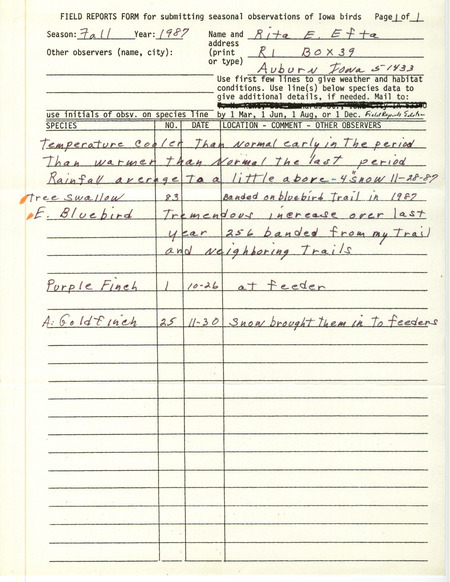 FIELD REPORTS FORM for submitting seasonal observations of Iowa birds Page 1 of 1
Season: Fall Year: 1987 Name and Rita E. Efta
address
Other observers (name, city): (print R1 BOX 39
or type) Auburn Iowa 51433
Use first few lines to give weather and habitat
conditions. Use line(s) below species data to
give additional details, if needed. Mail to:
use initials of obsv. on species line by 1 Mar, 1 Jun, 1 Aug, or 1 Dec. Field Reports Editor
SPECIES NO. DATE LOCATION - COMMENT - OTHER OBSERVERS
Temperature cooler Than Normal early in The period
Than warmer than Normal the last period
Rainfall average to a little above - 4" snow 11-28-87
Tree Swallow 83 Banded on bluebird Trail in 1987
E. Bluebird Tremendous increase over last
year 256 banded from my Trail
and Neighboring Trails
Purple Finch 1 10-26 at feeder
A. Goldfinch 25 11-30 Snow brought them in To feeders